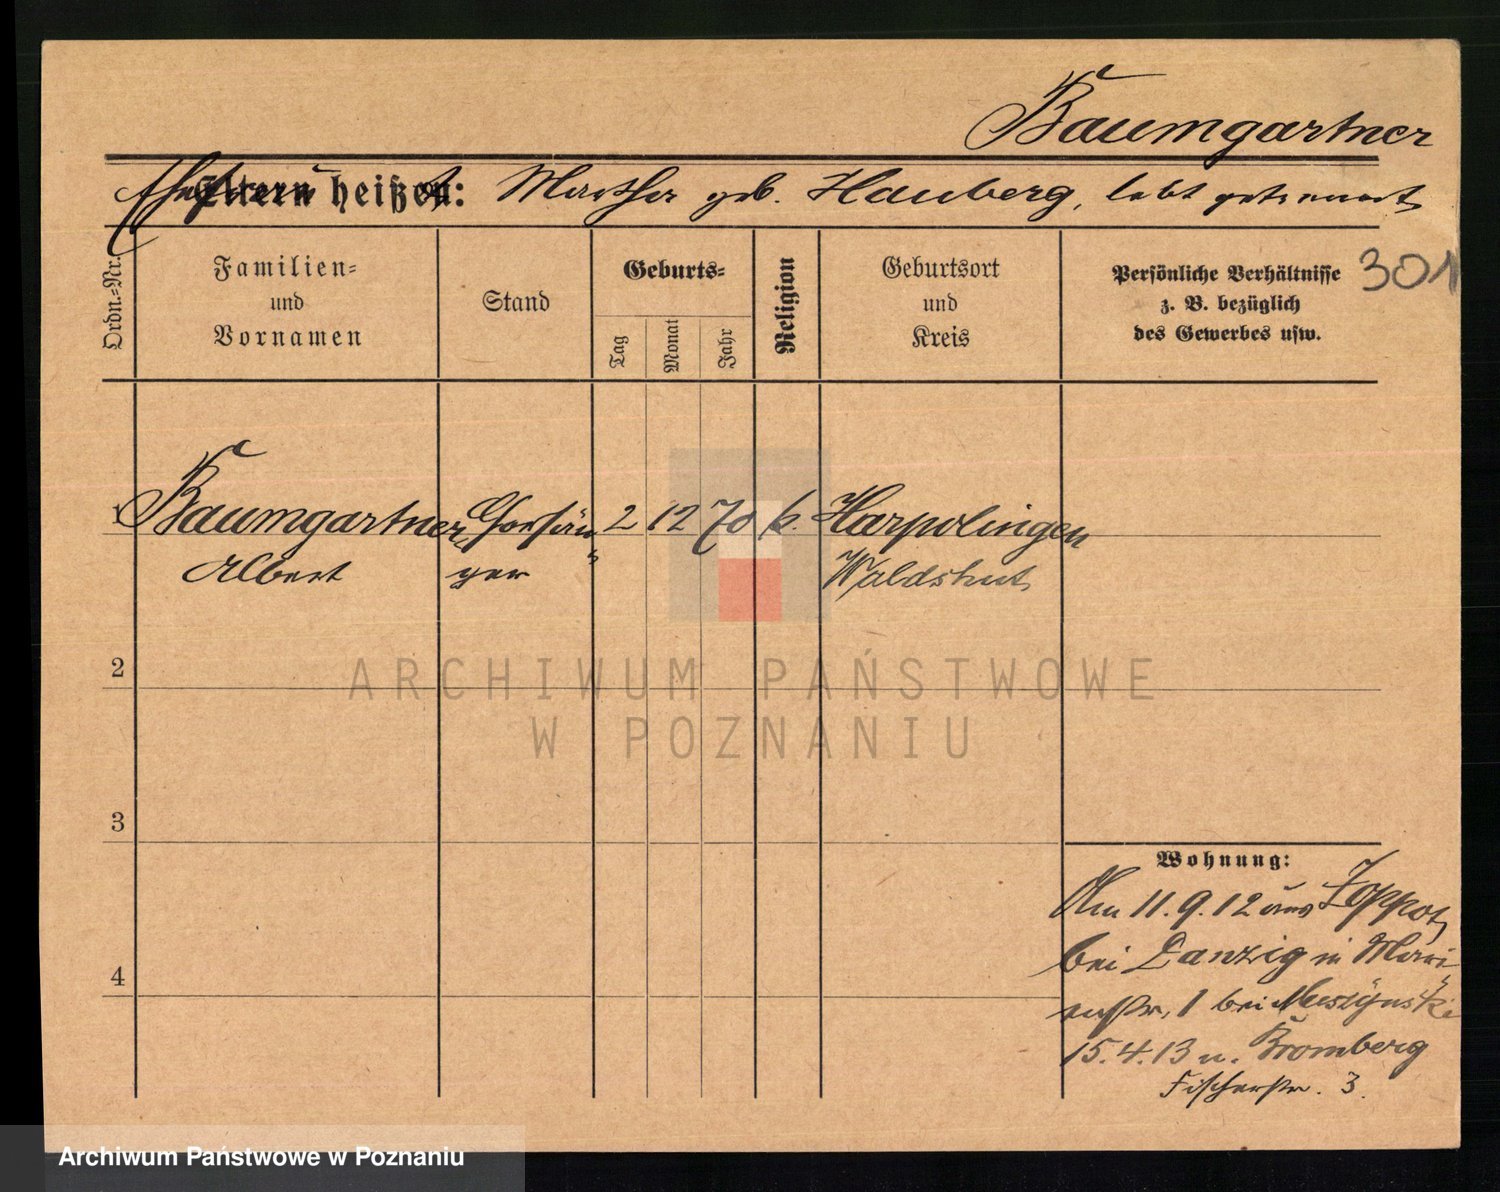 Baumgartner
Eltern heißen:
Ehefrau Martha geb. Hauberg, lebt getrennt
301
Ordn.-Nr.
Familien-
und
Vornamen
Stand
Geburts-
Tag
Monat
Jahr
Religion
Geburtsort
und
Kreis
Persönliche Verhältnisse
z. B. bezüglich
des Gewerbes usw.
1 Baumgartner, Chorsän- 2 12 70 k. Harpolingen
Albert ger Waldshut
2
3
4
Wohnung:
Am 11.9.12 aus Zoppot
bei Danzig in Mari-
enstr. 1 bei
15.4.13 n. Bromberg
Fischerstr. 3.
ARCHIWUM PAŃSTWOWE
W POZNANIU
Archiwum Państwowe w Poznaniu